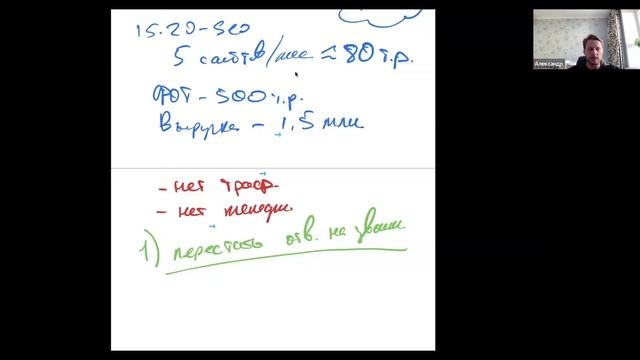 15.20-seo
5 сайтов/мес ≈ 80 т.р.
ФОТ - 500 т.р.
Выручка - 1,5 млн
- нет траф.
- нет менедж.
1) перестать отв. на звонки
Александр